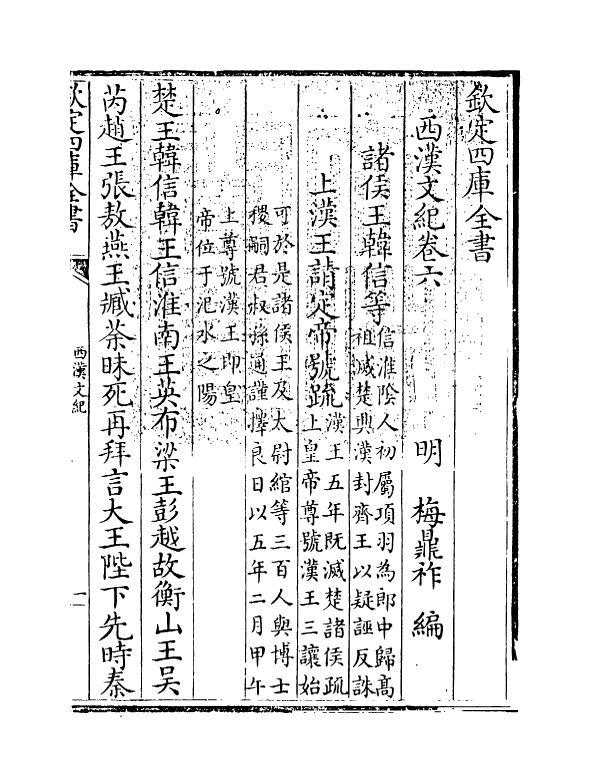 欽定四庫全書
西漢文紀卷六
明 梅鼎祚 編
諸侯王韓信等
信淮陰人初屬項羽為郎中歸髙
祖滅楚典漢封齊王以疑誣反誅
上漢王請定帝號疏
漢王五年既滅楚諸侯疏
上皇帝尊號漢王三讓始
可於是諸侯王及太尉綰等三百人與博士
稷嗣君叔孫通謹擇良日以五年二月甲午
上尊號漢王即皇
帝位于汜水之陽
楚王韓信韓王信淮南王英布梁王彭越故衡山王吳
芮趙王張敖燕王臧荼昧死再拜言大王陛下先時秦
欽定四庫全書
西漢文紀
一